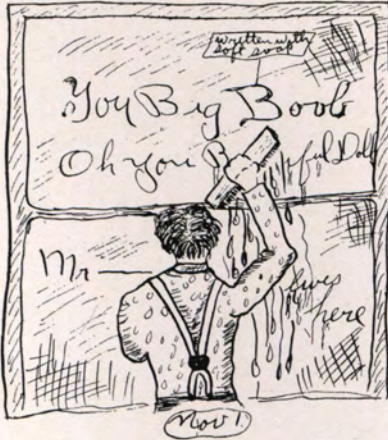 written with
soft soap
You Big Boob
Oh you B ful Doll
Mr — lives
here
Nov 1.